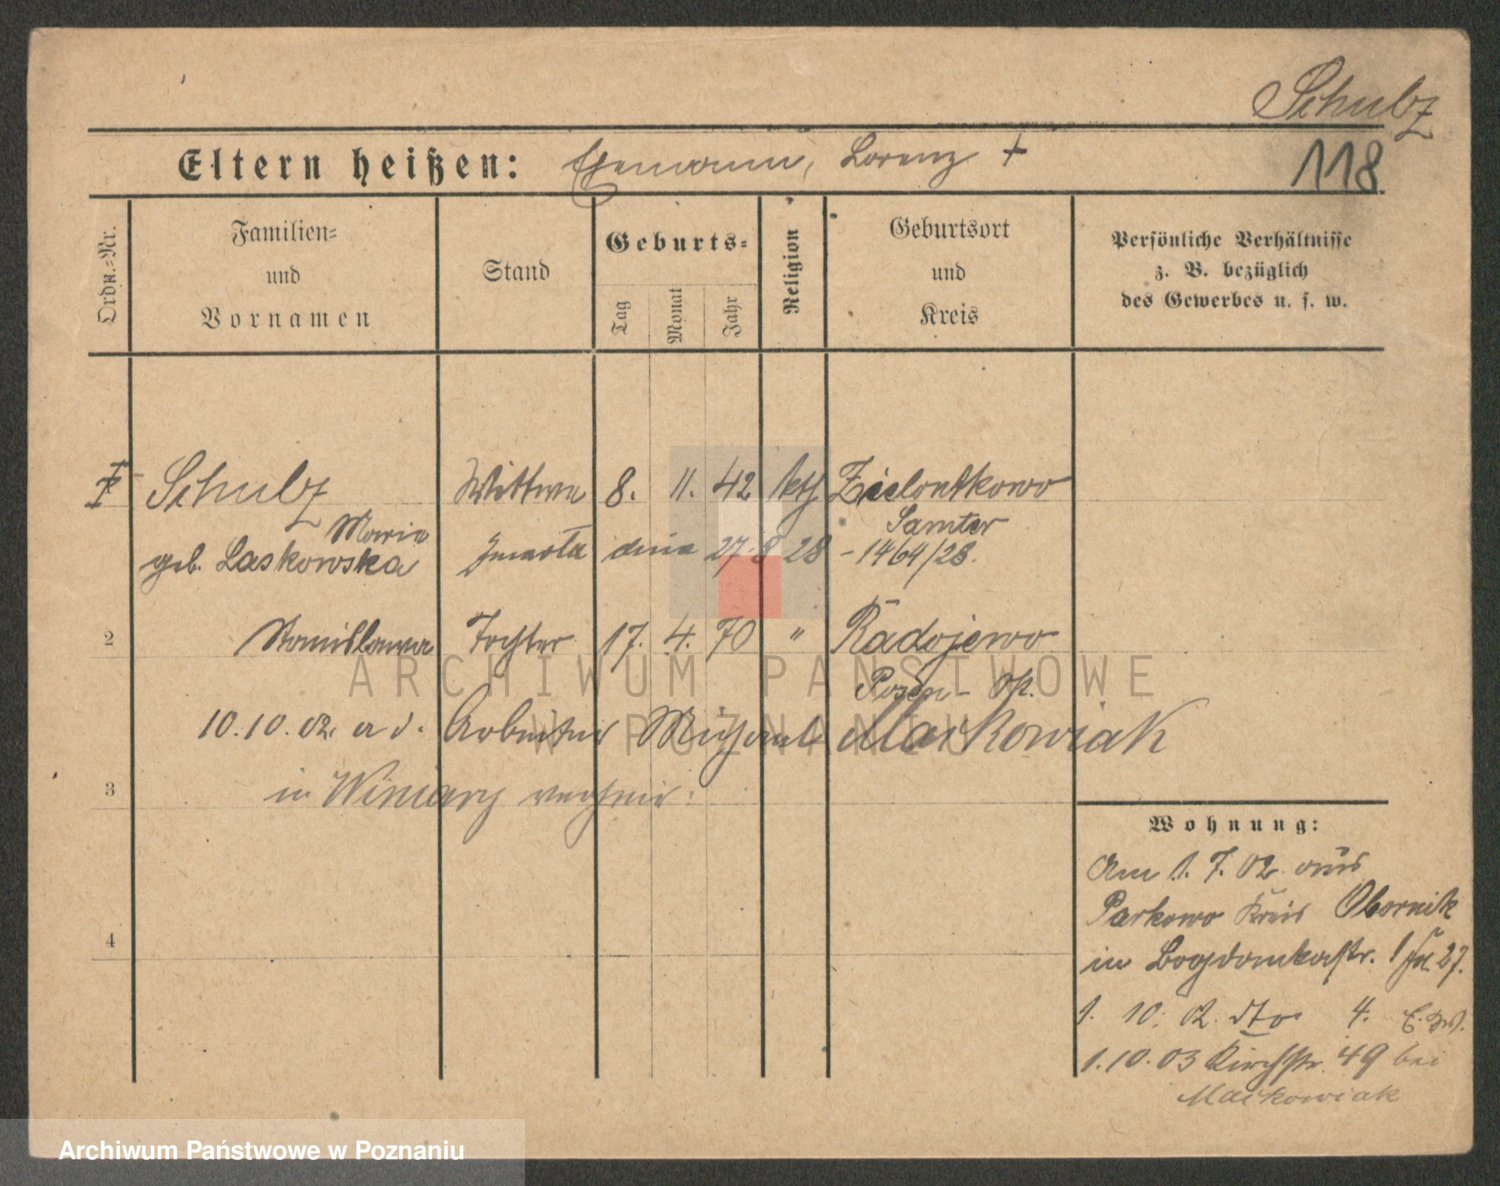 Schulz
Eltern heißen: Ehemann, Lorenz +
118.
Ordn.-Nr.
Familien-
und
Vornamen
Stand
Geburts-
Tag
Monat
Jahr
Religion
Geburtsort
und
Kreis
Persönliche Verhältnisse
z. B. bezüglich
des Gewerbes u. s. w.
Schulz Wittwe 8. 11. 42 kth Zielontkowo
Maria Samter
geb. Laskowska zmarła dnia 27.8 28 - 1464/28.
2 Stanislawa Tochter 17. 4. 70 " Radojewo
Posen-
10.10.02. a d. Arbeiter Michael Maikowiak
3 in Winiary
4
Wohnung:
Am 1.7.02 aus
Parkowo Kreis Obornik
in Bogdankastr. 1 27.
1. 10. 02. dto 4.
1.10.03 Kirchstr. 49 bei
Maikowiak
ARCHIWUM PAŃSTWOWE
W POZNANIU
Archiwum Państwowe w Poznaniu